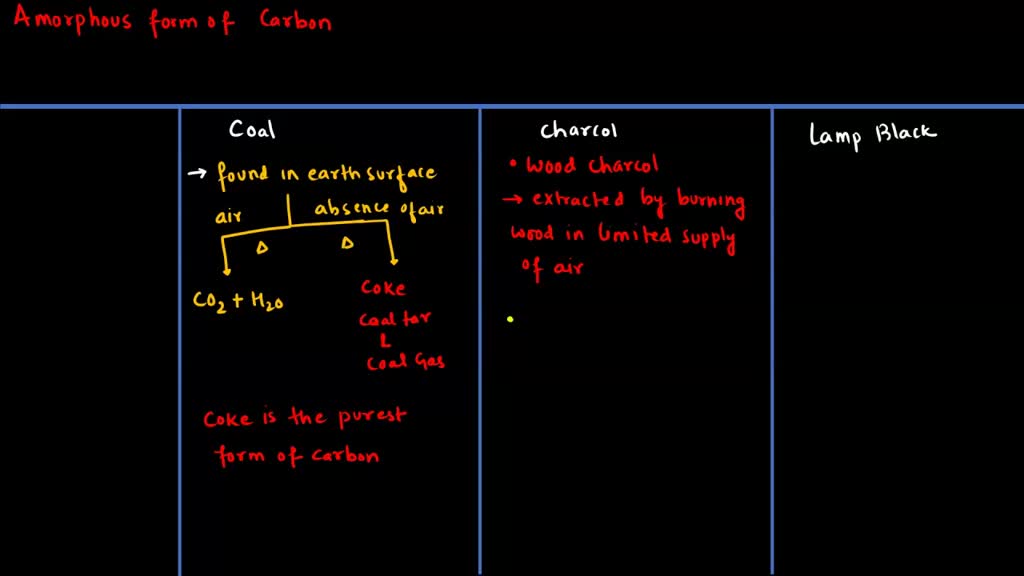 Amorphous form of Carbon
Coal
→ found in earth surface
air
absence of air
Δ
Δ
CO2 + H2O
Coke
Coal tar
L
Coal Gas
Coke is the purest
form of carbon
Charcol
• Wood charcol
→ extracted by burning
wood in limited supply
of air
•
Lamp Black